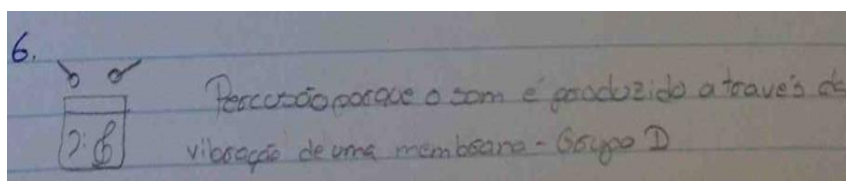 6.
Percussão porque o som é produzido a través da
vibração de uma membrana - Grupo D